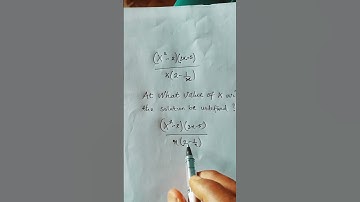 (x²-2)(3x-5)
x(2-1/x)
At What Value of x wi
the solution be undefined ?
(x²-2)(3x-5)
x(2-1/x)